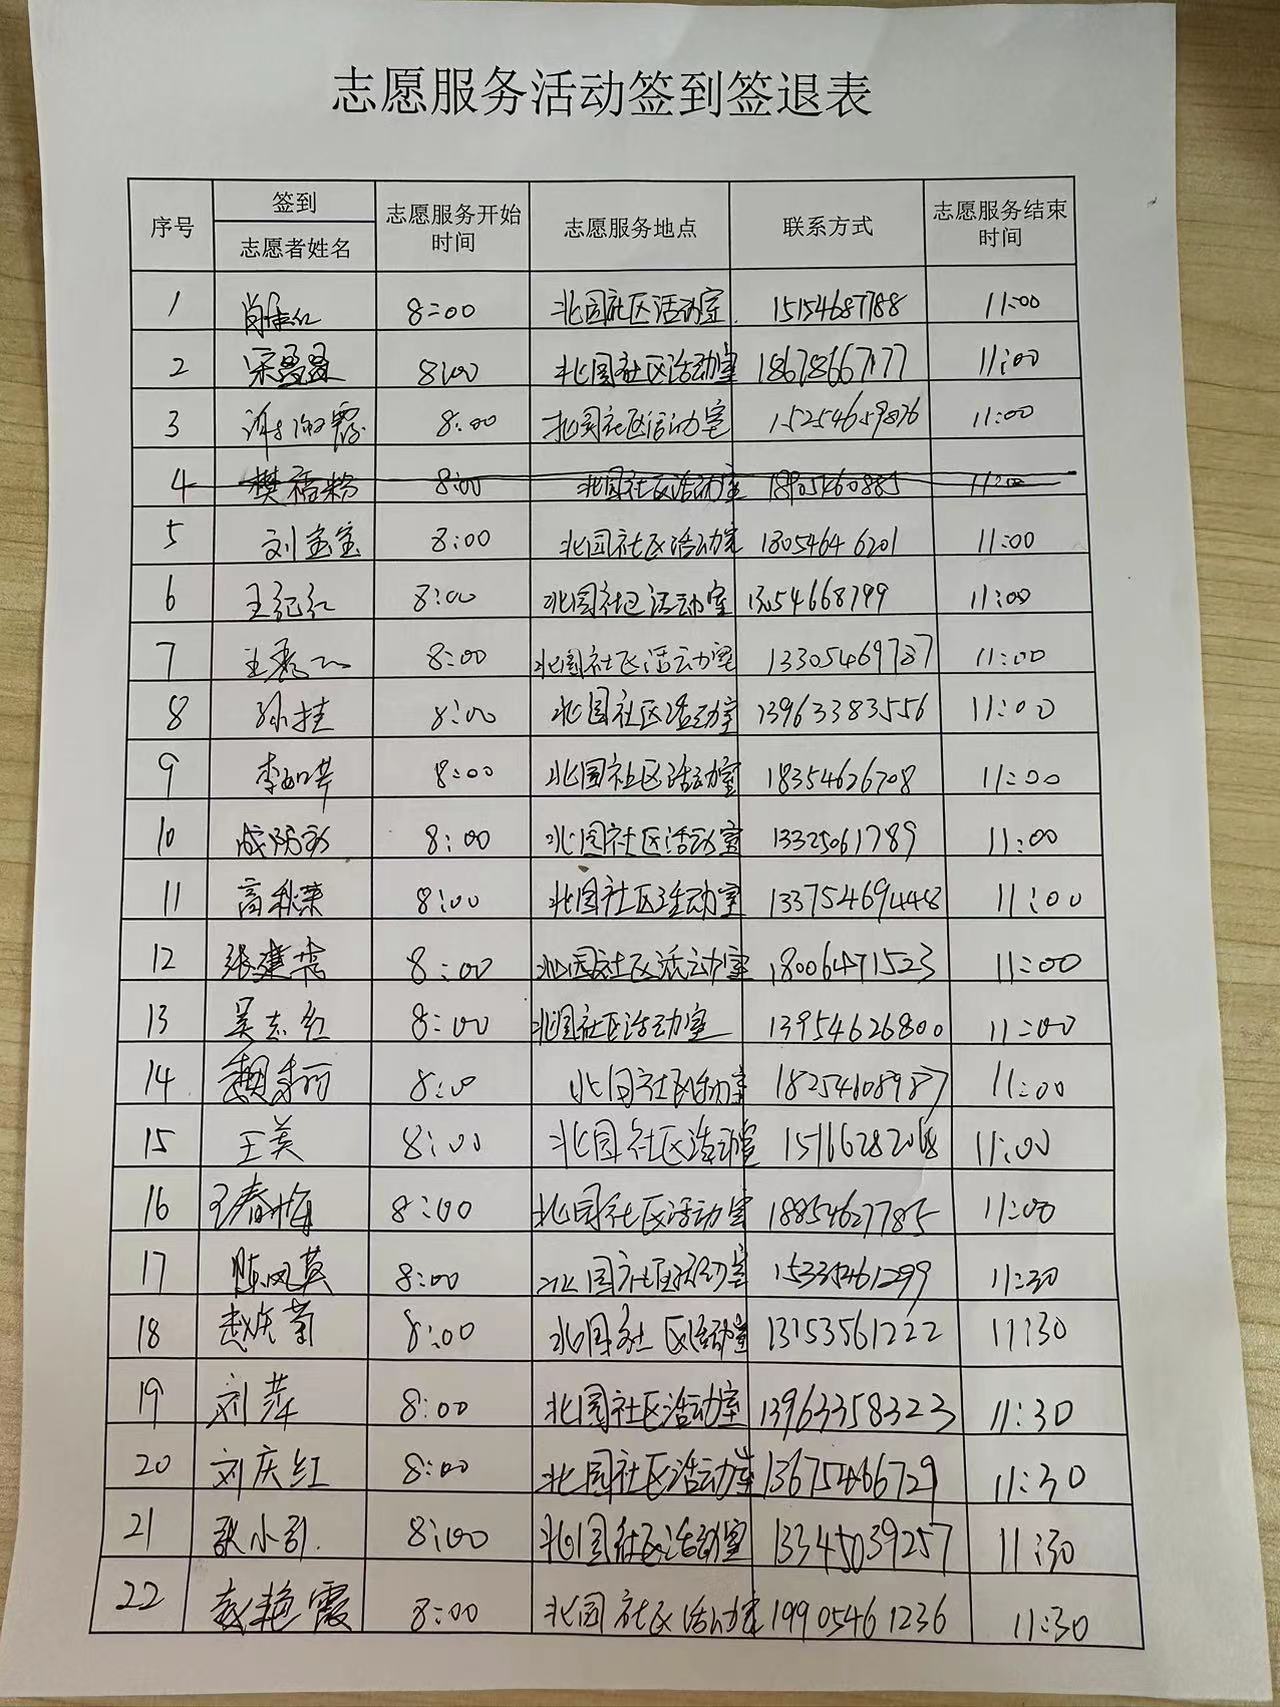 志愿服务活动签到签退表
序号 签到 志愿者姓名 志愿服务开始时间 志愿服务地点 联系方式 志愿服务结束时间
1 8:00 北园社区活动室 15154687788 11:00
2 宋 8:00 北园社区活动室 18678667177 11:00
3 霞 8:00 北园社区活动室 15254659876 11:00
4 樊福粉 8:00 北园社区活动室 18905460885 11:00
5 刘宝宝 8:00 北园社区活动室 18054646201 11:00
6 王纪红 8:00 北园社区活动室 13054668799 11:00
7 王 8:00 北园社区活动室 13305469787 11:00
8 孙桂 8:00 北园社区活动室 13963383556 11:00
9 李 8:00 北园社区活动室 18354626708 11:00
10 成 8:00 北园社区活动室 13325061789 11:00
11 高秋荣 8:00 北园社区活动室 13375469448 11:00
12 张建 8:00 北园社区活动室 18006471523 11:00
13 吴志红 8:00 北园社区活动室 13954626800 11:00
14 魏 丽 8:00 北园社区活动室 18254608987 11:00
15 王美 8:00 北园社区活动室 15166282068 11:00
16 王春梅 8:00 北园社区活动室 18854627785 11:00
17 陈凤英 8:00 北园社区活动室 15335461299 11:30
18 赵庆菊 8:00 北园社区活动室 13153561222 11:30
19 刘萍 8:00 北园社区活动室 13963358323 11:30
20 刘庆红 8:00 北园社区活动室 13675466729 11:30
21 张小引. 8:00 北园社区活动室 13345039257 11:30
22 赵艳霞 8:00 北园社区活动室 19905461236 11:30